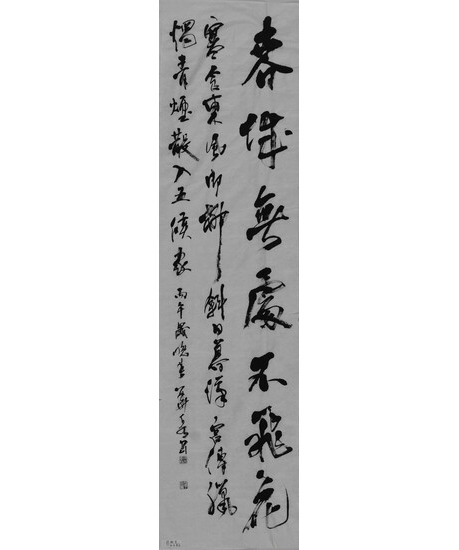 春城無處不飛花
寒食東風御柳斜日暮漢宮傳蠟
燭青煙散入五侯家 丙午歲晚